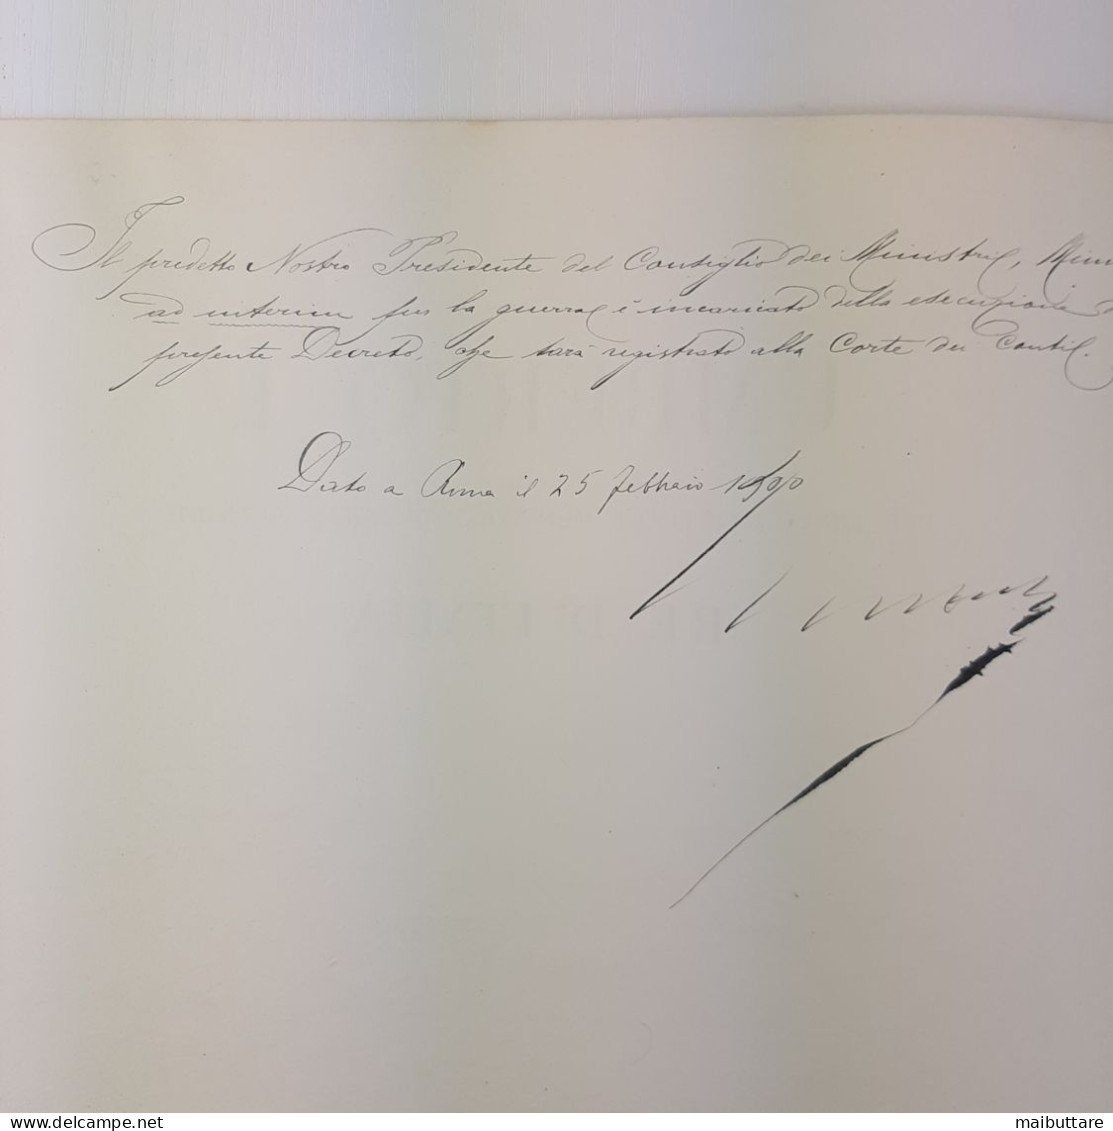 Il predetto Nostro Presidente del Consiglio dei Ministri, Min
ad interim per la guerra è incaricato della esecuzione
presente Decreto, che sarà registrato alla Corte dei Conti.
Dato a Roma il 25 febbraio 1900
maibuttare